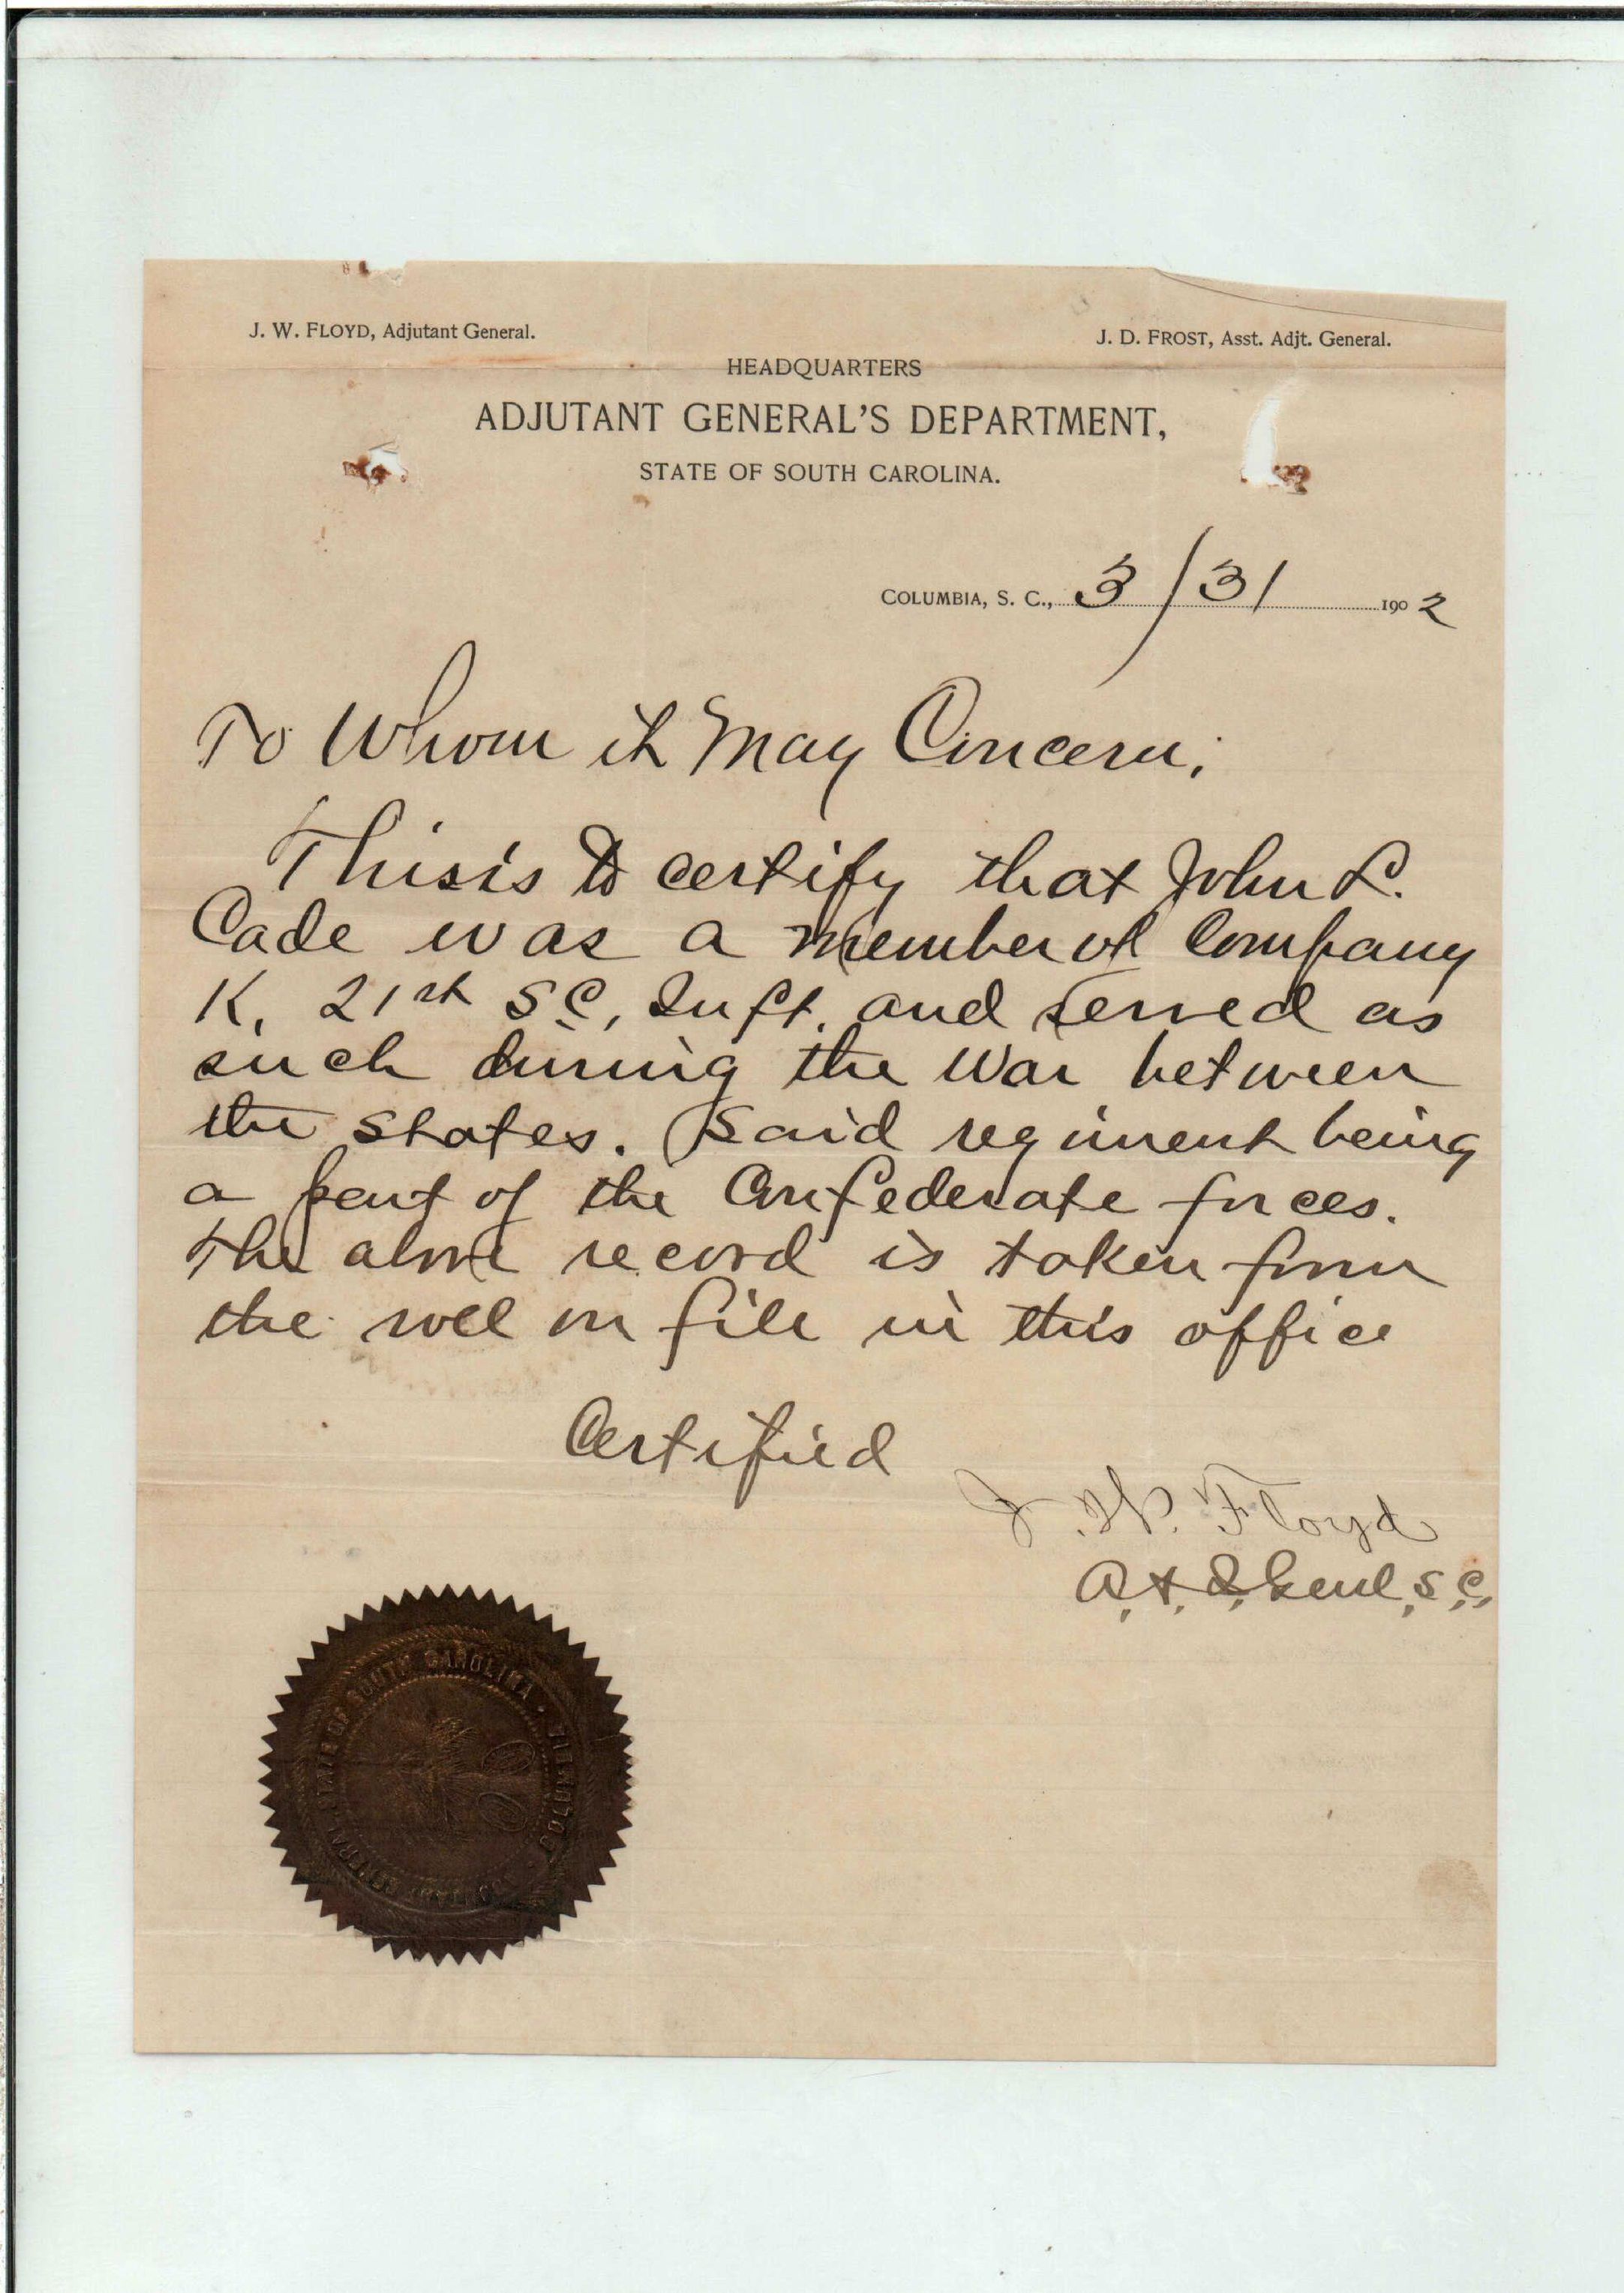 J. W. FLOYD, Adjutant General.
J. D. FROST, Asst. Adjt. General.
HEADQUARTERS
ADJUTANT GENERAL'S DEPARTMENT,
STATE OF SOUTH CAROLINA.
COLUMBIA, S. C., 3/31 1902
To Whom it May Concern;
This is to certify that John L.
Cade was a member of Company
K, 21st S.C, Inft. and served as
such during the War between
the states. Said regiment being
a part of the Confederate forces.
The above record is taken from
the roll on file in this office
Certified
J. W. Floyd
A. & I. Genl, S.C,
STATE OF SOUTH CAROLINA